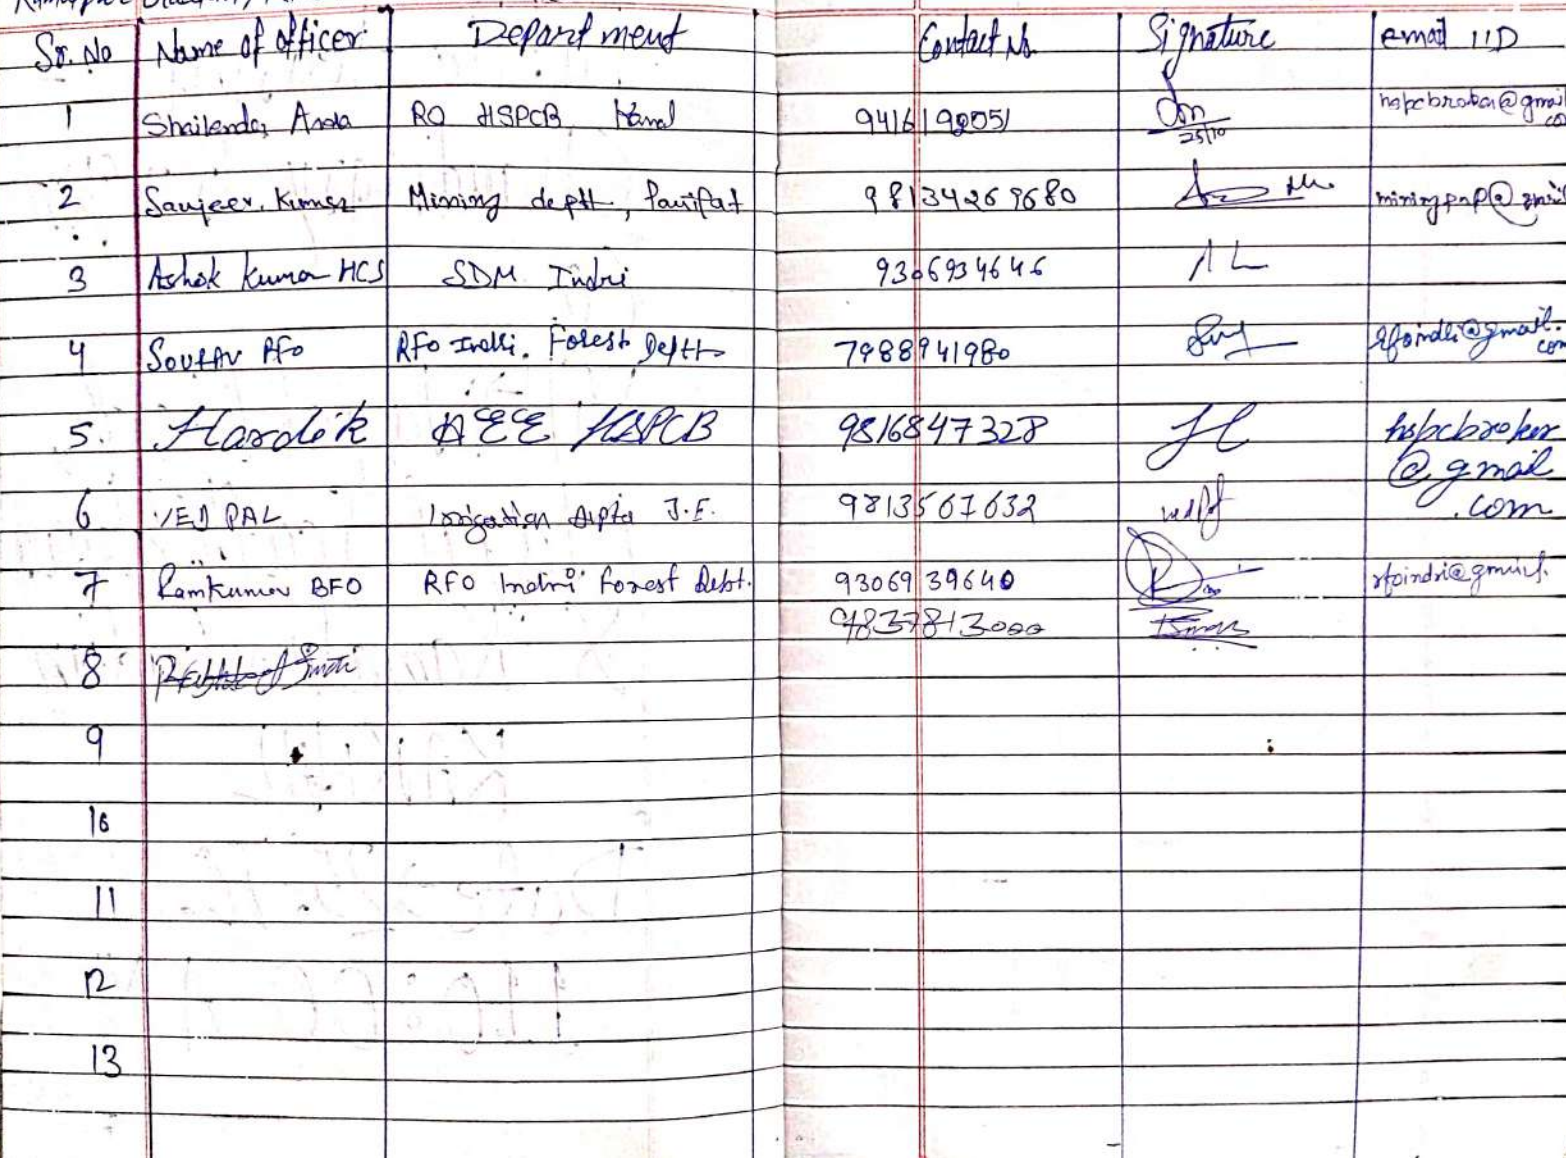 Sr. No Name of officer Department Contact No. Signature email ID
1 Shailender Arora RO HSPCB, Karnal 9416192051 25/10 hspcbroker@gmail.co
2 Sanjeev Kumar Mining deptt, Panipat 98134269680 miningpnp@gmail
3 Ashok Kumar HCS SDM Indri 9306934646
4 Sourav RFO RFO Indri. Forest Deptt 7988941980 rfoindri@gmail.com
5. Hardik AEE HSPCB 9816847328 hspcbroker
@gmail
.com
6 VED PAL Irrigation J.E. 9813567632
7 Ramkumar BFO RFO Indri Forest Debt. 9306939640 rfoindri@gmail.
9837813000
8
9
10
11
12
13